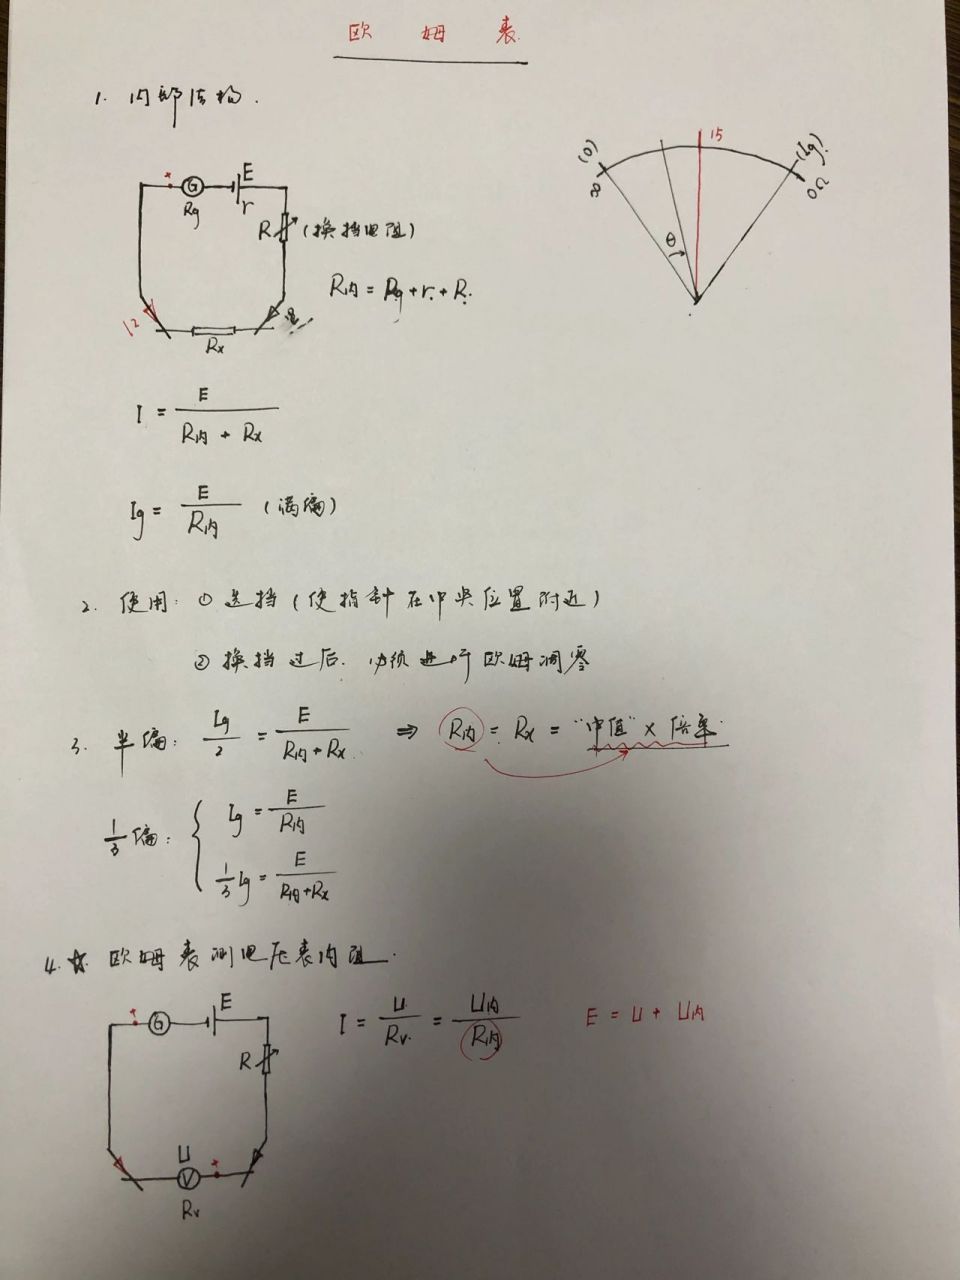 欧姆表
1. 内部结构.
(0)
∞
15
(Ig)
0Ω
+
G
Rg
E
r
R (换挡电阻)
R内 = Rg + r + R.
红
黑
Rx
I = E / (R内 + Rx)
Ig = E / R内 (满偏)
θ
2. 使用: ① 选挡 (使指针在中央位置附近)
② 换挡过后. 必须进行欧姆调零
3. 半偏: Ig/2 = E / (R内 + Rx) ⇒ R内 = Rx = "中值" × 倍率.
1/3 偏: { Ig = E / R内
1/3 Ig = E / (R内 + Rx)
4. ☆ 欧姆表测电压表内阻.
+
G
E
R
U
V
+
Rv
I = U / Rv = U内 / R内
E = U + U内